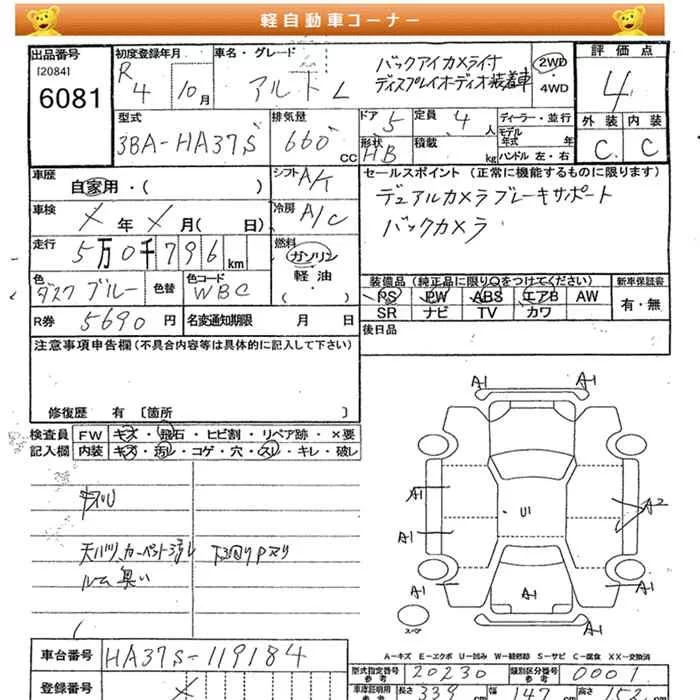 軽自動車コーナー
出品番号
[2084]
6081
初度登録年月
R 4年 10月
車名・グレード
アルト L
バックアイカメラ付
ディスプレイオーディオ装着車
2WD・4WD
評価点
4
外装 内装
C C
型式
3BA-HA37S
排気量
660cc
ドア 5
形状 HB
定員 4人
積載 kg
ディーラー・並行
モデル年式 年
ハンドル 左・右
車歴
自家用・( )
シフト A/K
車検
X年X月( 日)
冷房 A/C
走行
5万0千796km
燃料
ガソリン
軽油
( )
色
ダスクブルー
色替
色コード
WBC
R券 5690円
名変通知期限 月 日
セールスポイント (正常に機能するものに限ります)
デュアルカメラブレーキサポート
バックカメラ
装備品 (純正品に限り○をつけてください)
PS PW ABS エアB AW
SR ナビ TV カワ
新車保証書
有・無
後日品
注意事項申告欄 (不具合内容等は具体的に記入して下さい)
修復歴 有 〔箇所 〕
検査員記入欄
FW キズ・飛石・ヒビ割・リペア跡・×要
内装 キズ・汚レ・コゲ・穴・スレ・キレ・破レ
キズU
天バリ、カーペット汚レ 下廻りPサリ
ルーム臭い
A1 A1
A1 A2
U1
A1
A1 A1 A1
A1
スペア
A-キズ E-エクボ U-凹み W-補修跡 S-サビ C-腐食 XX-交換済
車台番号
HA37S-119184
登録番号
X
型式指定番号 参考 20230
類別区分番号 参考 0001
車庫証明用 参考
長さ 339cm 幅 147cm 高さ